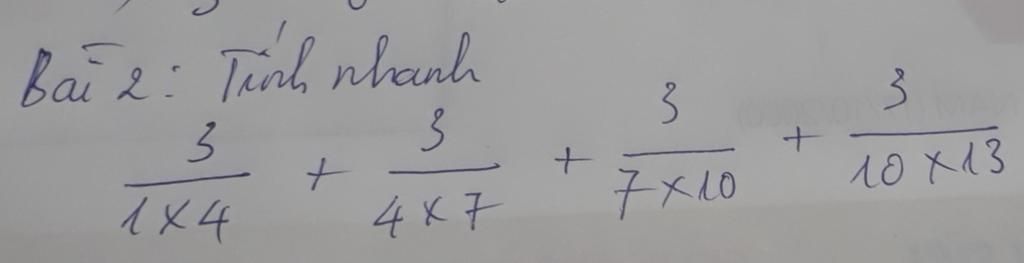 Bài 2: Tính nhanh
3/(1×4) + 3/(4×7) + 3/(7×10) + 3/(10×13)